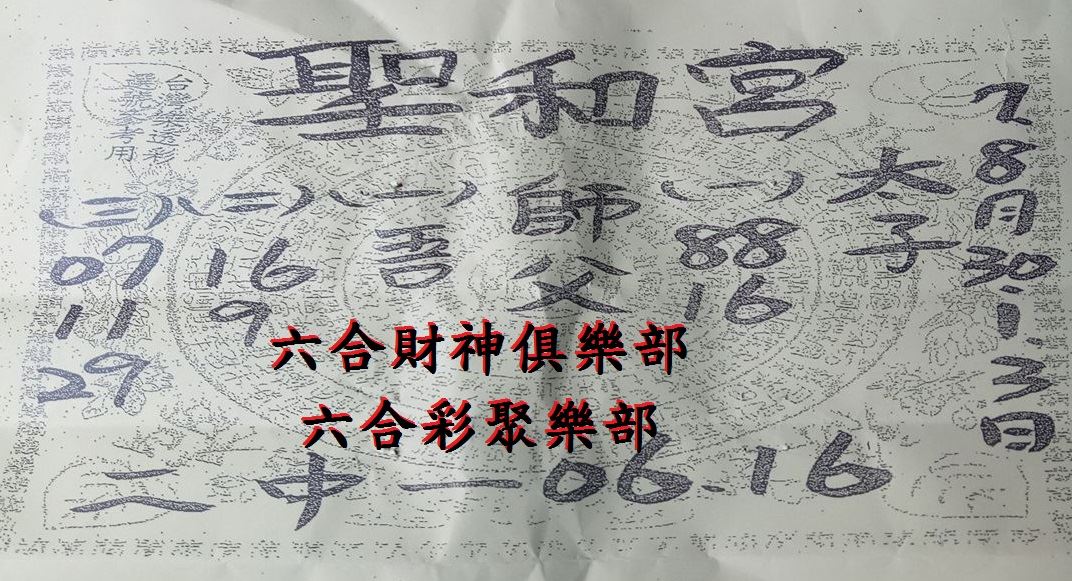 聖和宮
台灣樂透彩
專用
7
8月
30.
1.
3
日
太子
(一)
88
16
師父
(一)
吾
(二)
16
9
(三)
07
11
29
六合財神俱樂部
六合彩聚樂部
二中一06.16